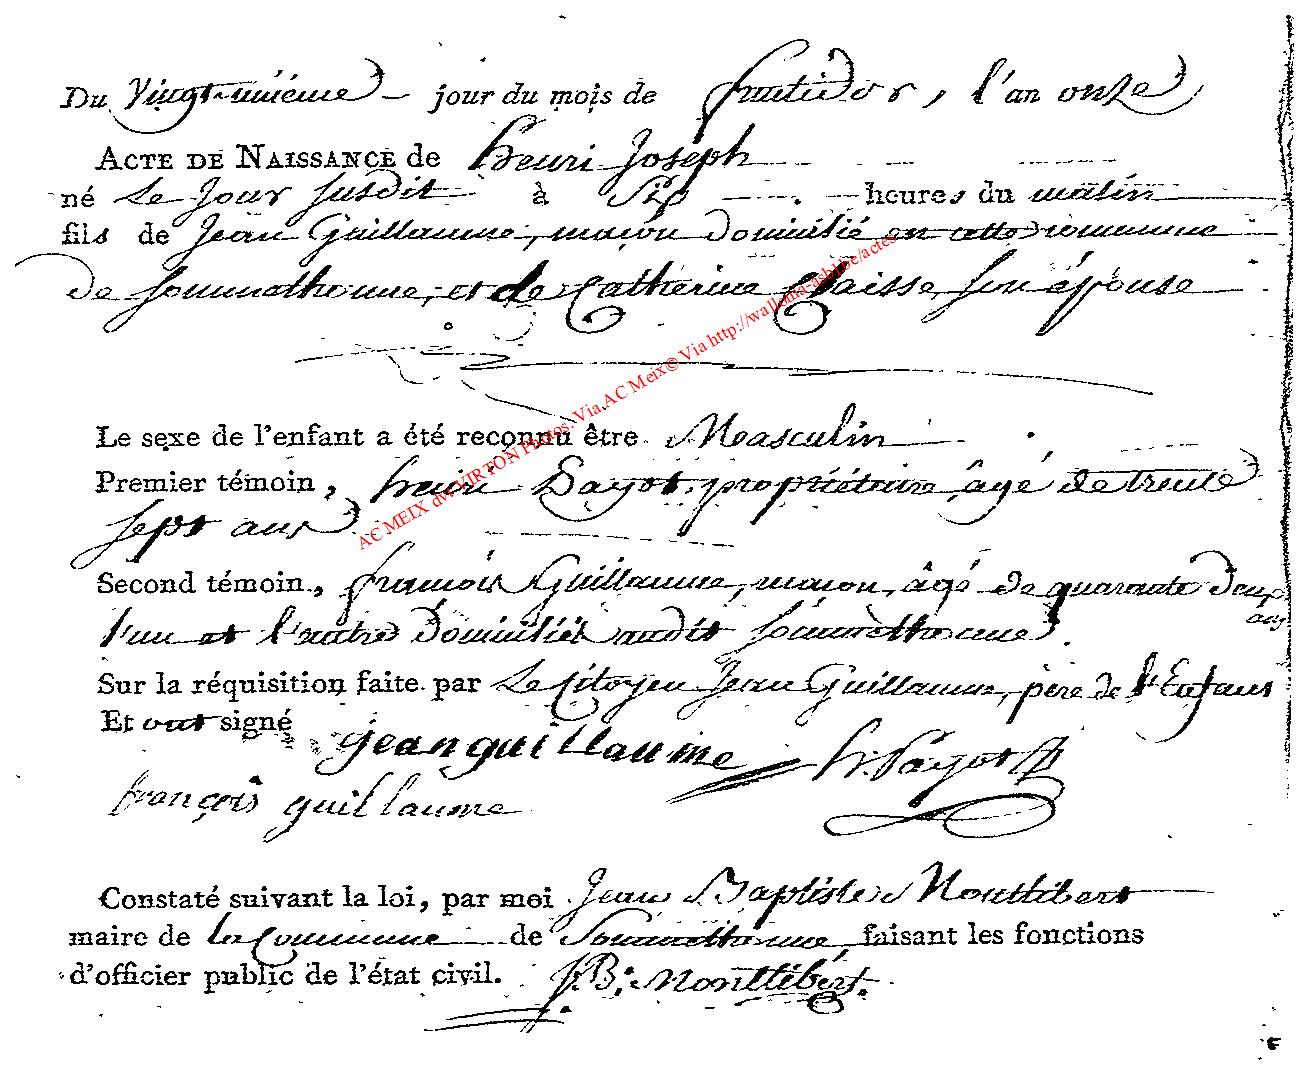 Du Vingt-unieme jour du mois de fructidor, l'an onze
ACTE DE NAISSANCE de henri Joseph
né Le Jour susdit à Six heures du matin
fils de Jean Guillaume, maçon domicilié en cette commune
de Sommethonne, et de Catherine Claisse, son épouse
Le sexe de l'enfant a été reconnu être Masculin
Premier témoin, henri Payot, propriétaire, âgé de trente
sept ans
Second témoin, françois Guillaume, maçon, âgé de quarante deux
ans
l'un et l'autre domiciliés audit Sommethonne.
Sur la réquisition faite par Le Citoyen Jean Guillaume, père de l'Enfant
Et ont signé
jean guillaume h. Payot
françois guillaume
Constaté suivant la loi, par moi Jean Baptiste Monttibert
maire de la Commune de Sommethonne faisant les fonctions
d'officier public de l'état civil. J. B. Monttibért.
AC MEIX dvt VIRTON Photos. Via AC Meix© Via http://wallonia-asbl.be/actes